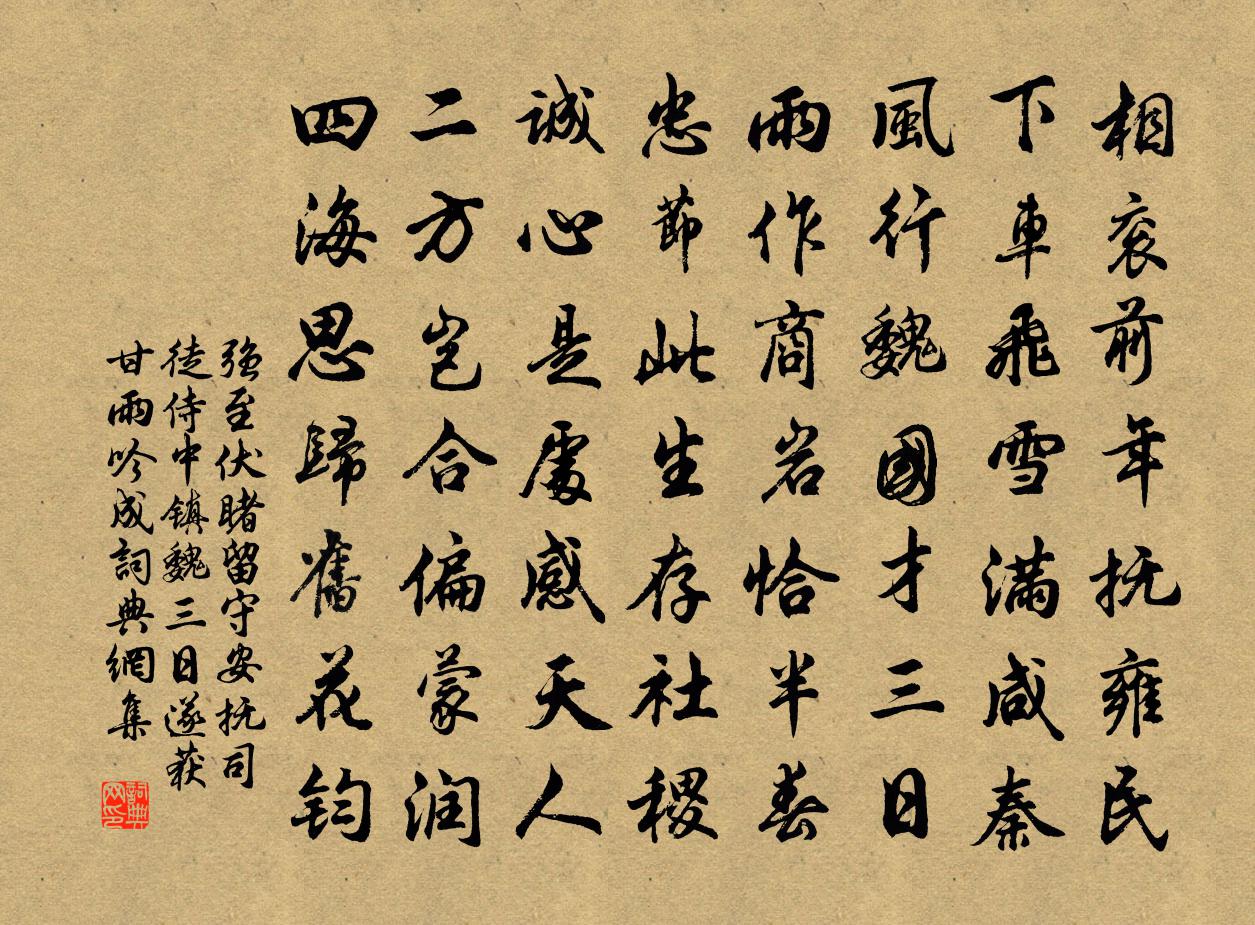 相衮前年抚雍民
下車飛雪满咸秦
風行魏國才三日
雨作商岩恰半春
忠節此生存社稷
誠心是處感天人
二方岂合偏蒙润
四海思歸舊花钧
强至伏睹留守安抚司
徒侍中镇魏三日遂获
甘雨吟成詞典網集